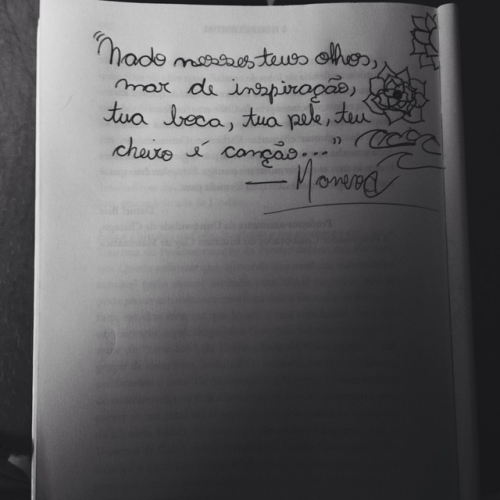 "Nado nesses teus olhos,
mar de inspiração,
tua boca, tua pele, teu
cheiro é canção..."